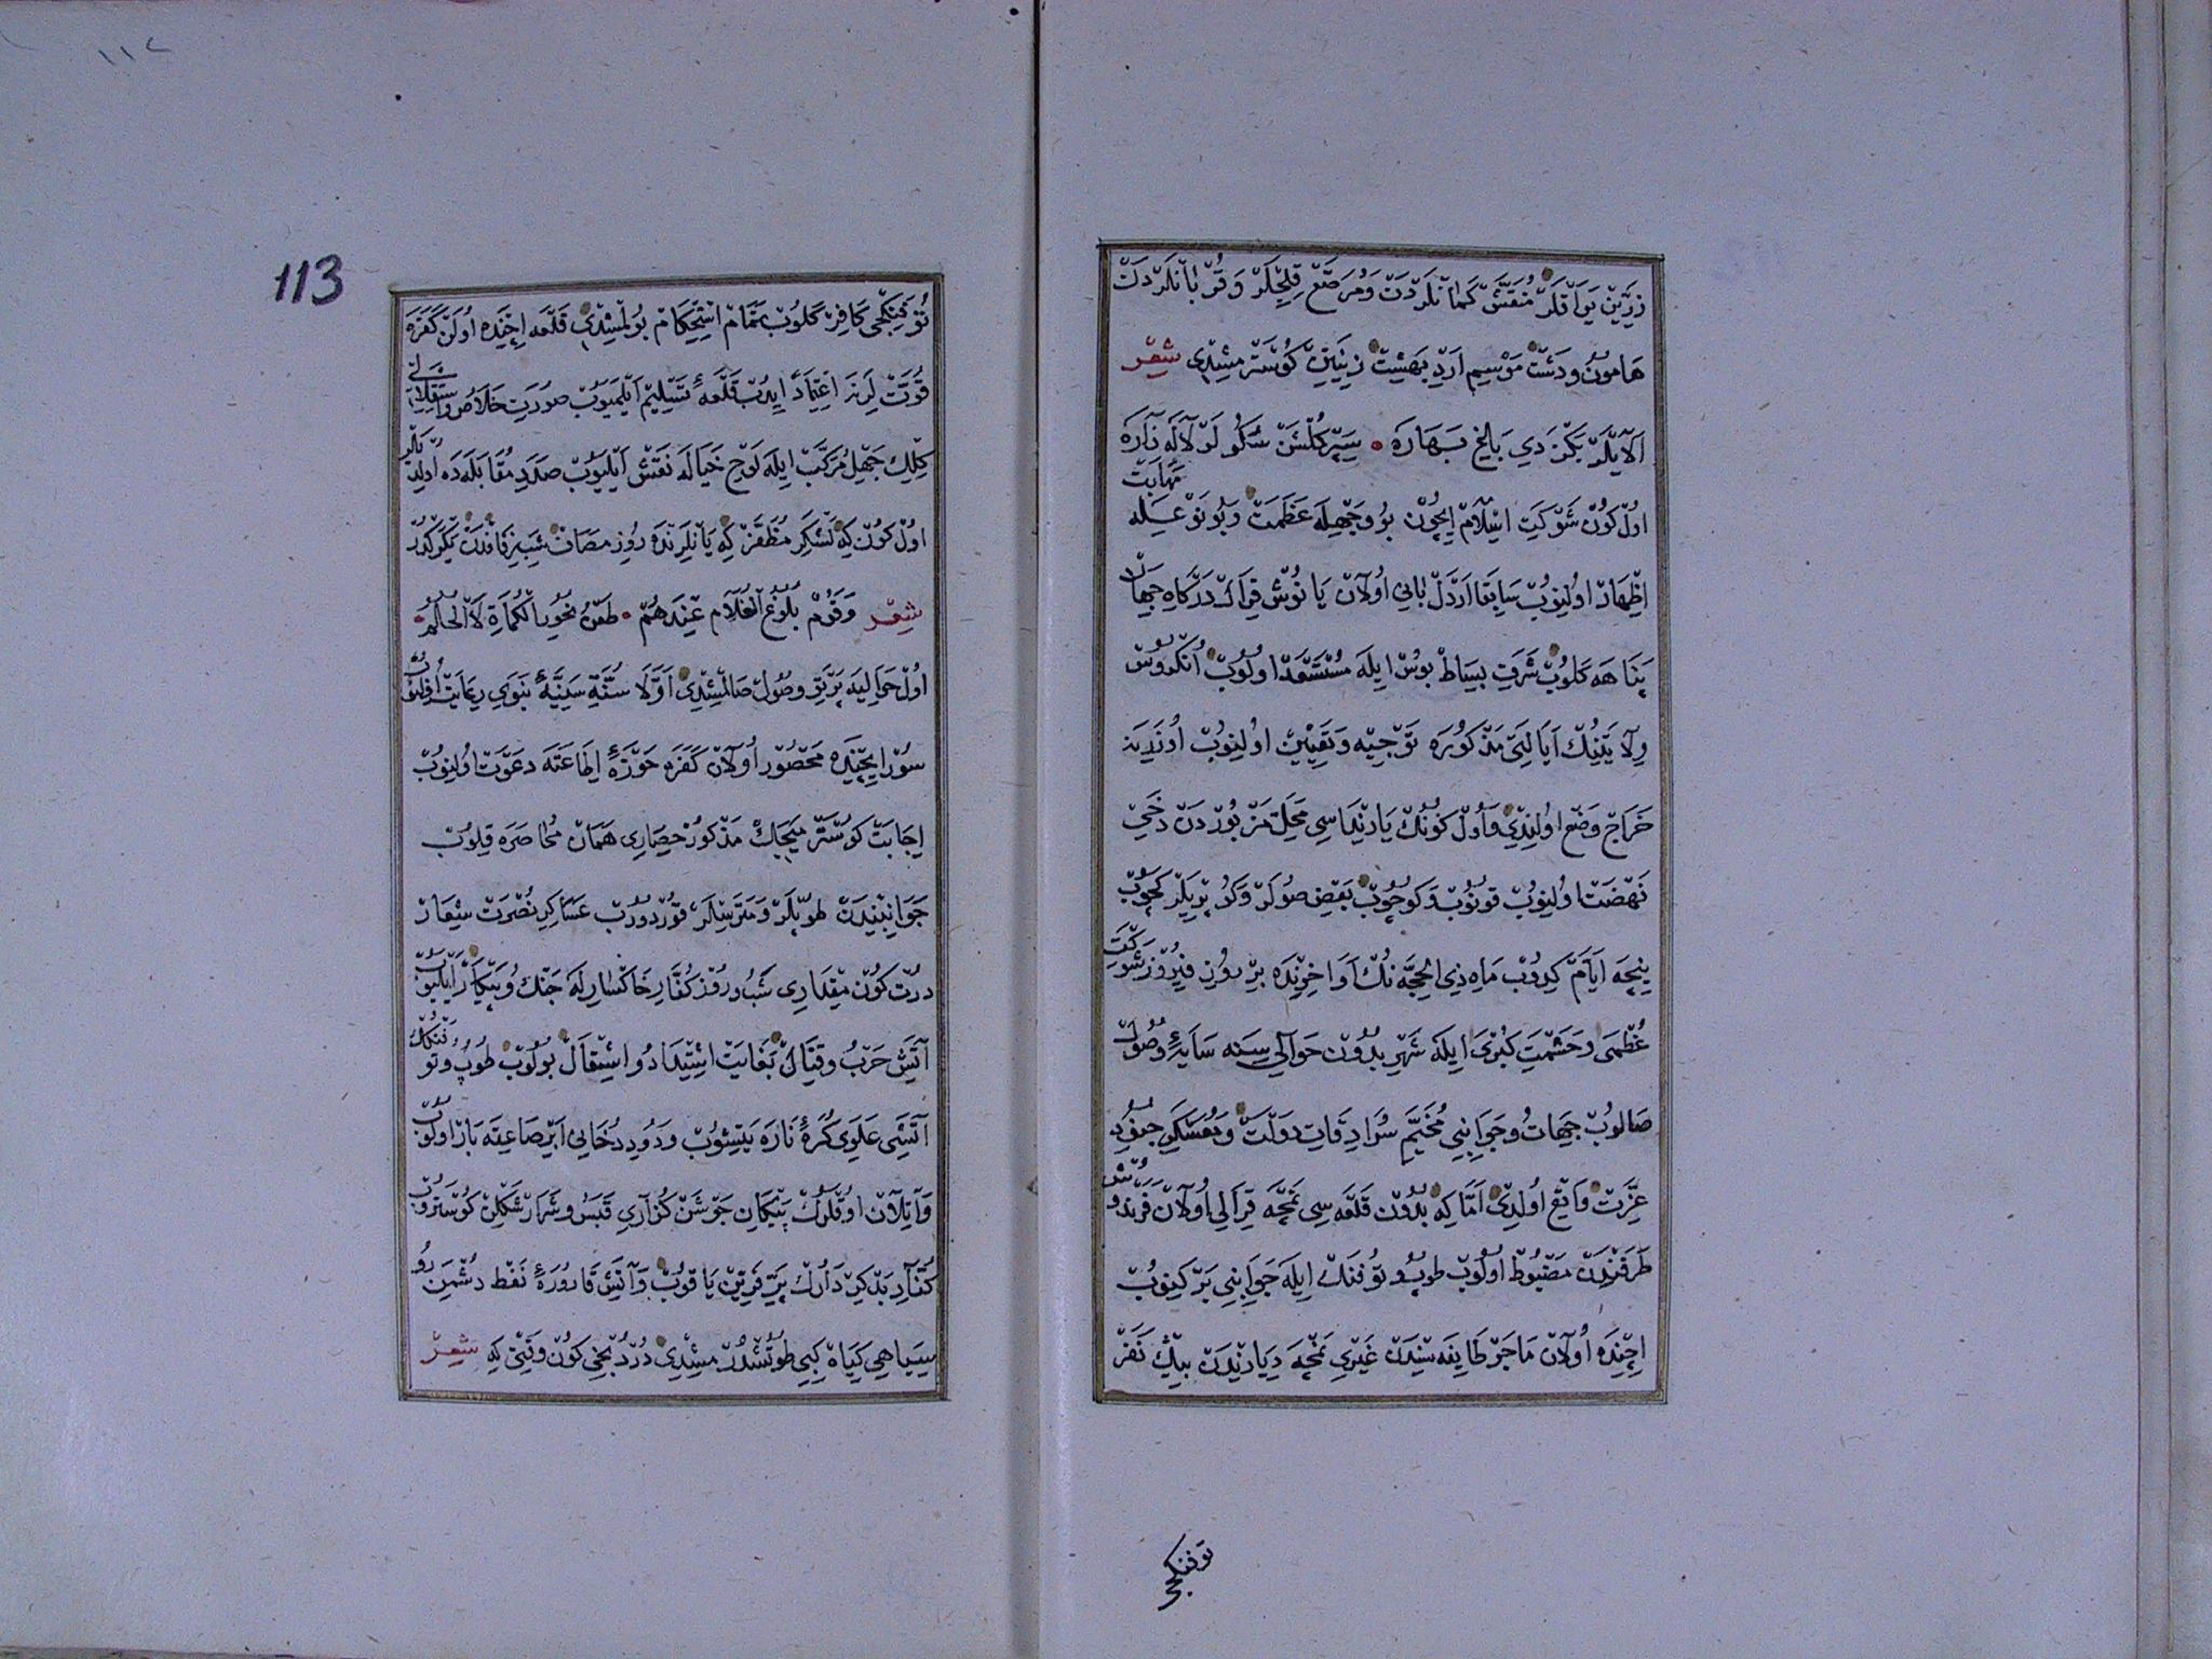 زرين يراقلر منقش كمانلردن ومرصع قليجلر وقربانلردن
هامون ودشت موسم اردبهشت زينتين كوسترمشدى شعر
آلايلر بكزدي باغ بهاره سير كلشن شكولر لاله زاره
اول كون شوكت اسلام ايچون بو وجهله عظمت وبو نوعله مهابت
اظهار اولنوب سابقا اردل باني اولان يانوش قرال دركاه جهان
پناهه كلوب شرف بساط بوس ايله مستسعد اولوب انكروس
ولايتنك ايالتى مذكوره توجيه وتعيين اولنوب اوزرينه
خراج وضع اولندى واول كونك يارنداسى محل مزبوردن دخي
نهضت اولنوب قونوب وكوچوب بعض صولر وكوپريلر كچوب
نيچه ايام كيدوب ماه ذي الحجه نك اواخرنده بر روز فيروز شوكت
عظمى وحشمت كبرى ايله شهر بدون حواليسنه سايۀ وصول
صالوب جهات وجوانبي مخيم سرادقات دولت ومعسكر جنود
عزت واقع اولدى اما كه بدون قلعه سى نمچه قرالي اولان فرندوش
طرفندن مضبوط اولوب طوپ وتوفنك ايله جوانبي بركينوب
ايچنده اولان ماجر طايفه سندن غيري نمچه ديارندن بيك نفر
توفنكجى
١١٢
113
توفنكجى كافر كلوب تمام استحكام بولمشدى قلعه ايچنده اولن كفره
قوتلرنه اعتماد ايدوب قلعه ئي تسليم ايلميوب صورت خلاص واستقلالى
كلك جهل مركب ايله لوح خياله نقش ايليوب صدد مقابله ده اولديلر
اول كون كه لشكر مظفر كه يانلرنده روز مصاف شب زفافدن يكركدر
شعر وقوم بلوغ الغلام عندهم طعن نحور الكماة لا الحلم
اول حواليه پرتو وصول صالمشدى اولا سنة سنيۀ نبوي رعايت اولنوب
سور ايچنده محصور اولان كفره حوزۀ اطاعته دعوت اولنوب
اجابت كوسترميجك مذكور حصارى همان محاصره قلوب
جوانبندن طوپلر ومترسلر قوردوروب عساكر نصرت شعار
درت كون مقدارى شب وروز كفار خاكسارله جنك وپيكار ايليوب
آتش حرب وقتال بغايت اشتداد واشتعال بولوب طوپ وتوفنكك
آتشى علوى كرۀ ناره يتشوب ودود دخاني ابر صاعقه بار اولوب
وآتيلان اوقلرك پيكان جوشن كذارى قبس وشرار شكلن كوستروب
كفار بدكردارك پر فرين ياقوب وآتش قارورۀ نفط دشمن رو
سياهي كياه كبي طوتشدرمشدى درد نجي كون وقتى كه شعر